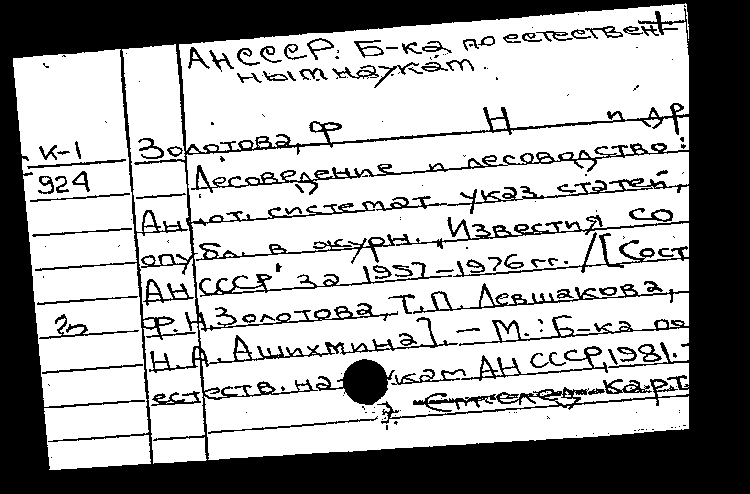 АН СССР. Б-ка по естествен-
ным наукам.
К-1 Золотова, Ф Н и др
924 Лесоведение и лесоводство:
Аннот. системат. указ. статей,
опубл. в журн. "Известия СО
АН СССР" за 1957-1976 гг. /[Сост
Ф.Н.Золотова, Т.П. Левшакова,
Н.А. Ашихмина]. - М.: Б-ка по
естеств. наукам АН СССР, 1981. -
карт.